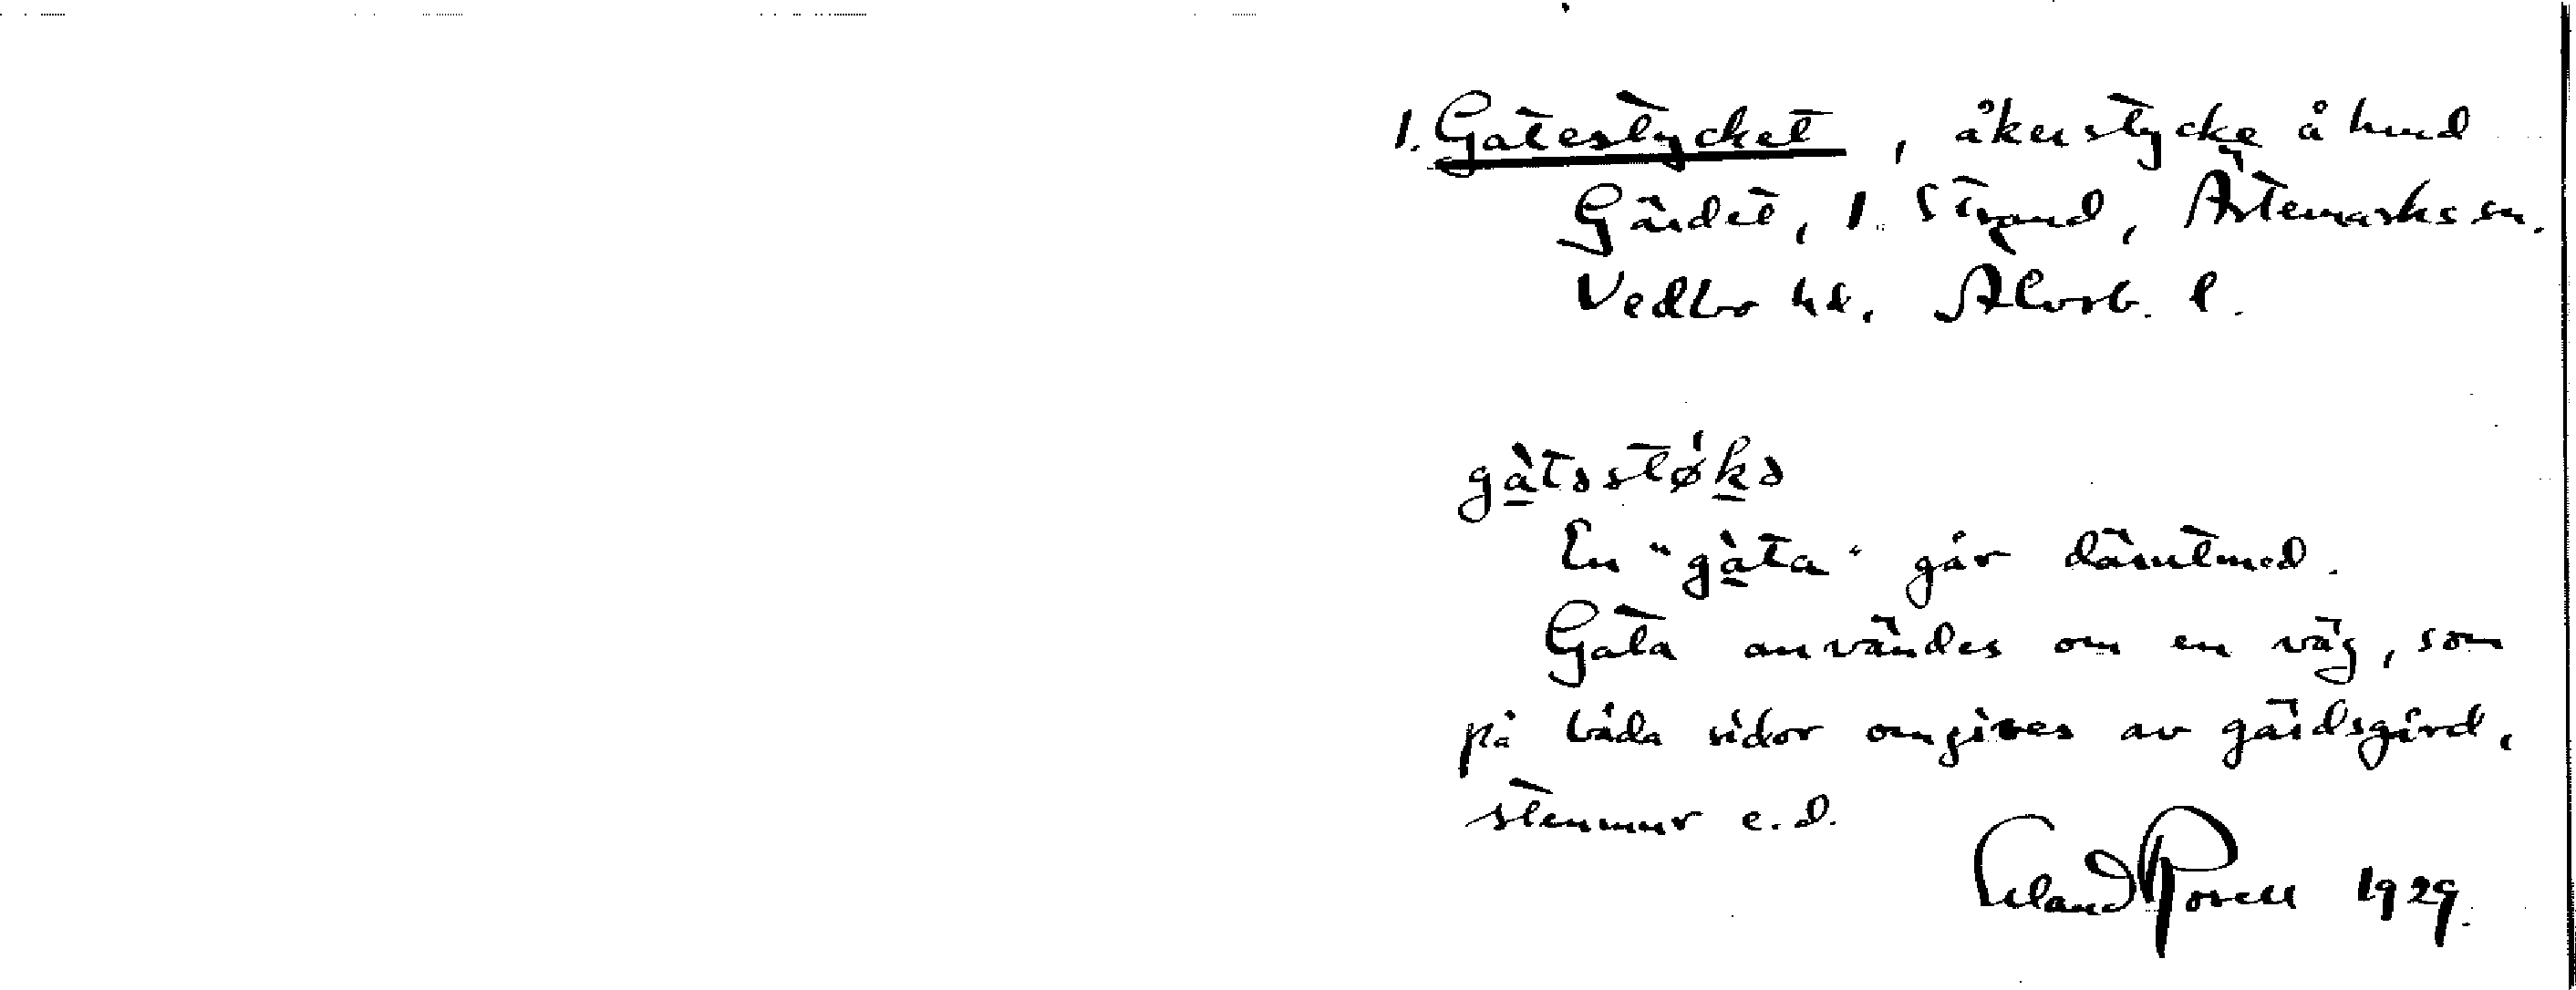 1. Gatestycket, åkerstycke å hmd
Gärdet, 1. Strand, Ärtemarks sn.
Vedbo hd. Älvsb. l.
gàtəstǿkə
En "gàta" går därutmed.
Gata användes om en väg, som
på båda sidor omgives av gärdsgård,
stenmur e.d.
Erland Rosell 1929.